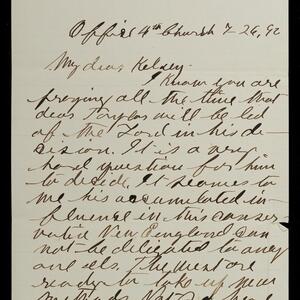 Office 4th Church 7 26, 92
My dear Kelsey.
I know you are
praying all the time that
dear Taylor will be led
of the Lord in his de-
cision. It is a very
hard question for him
to decide. It seemes to
me his accumulated in-
fluence in this conser-
vative New England can
not be deligated to any
one els. The
ready to take up new
methods